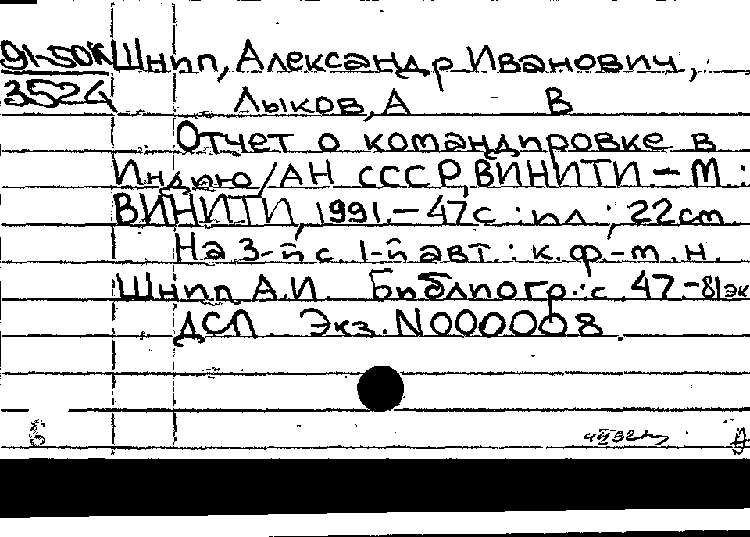 91-50К Шнип, Александр Иванович,
3524 Лыков, А В
Отчет о командировке в
Индию/АН СССР, ВИНИТИ. – М. :
ВИНИТИ, 1991. – 47с : ил ; 22см
На 3-й с. 1-й авт. : к. ф.-м. н.
Шнип А.И. Библиогр.: с. 47. – 81эк
ДСП. Экз. N000008.